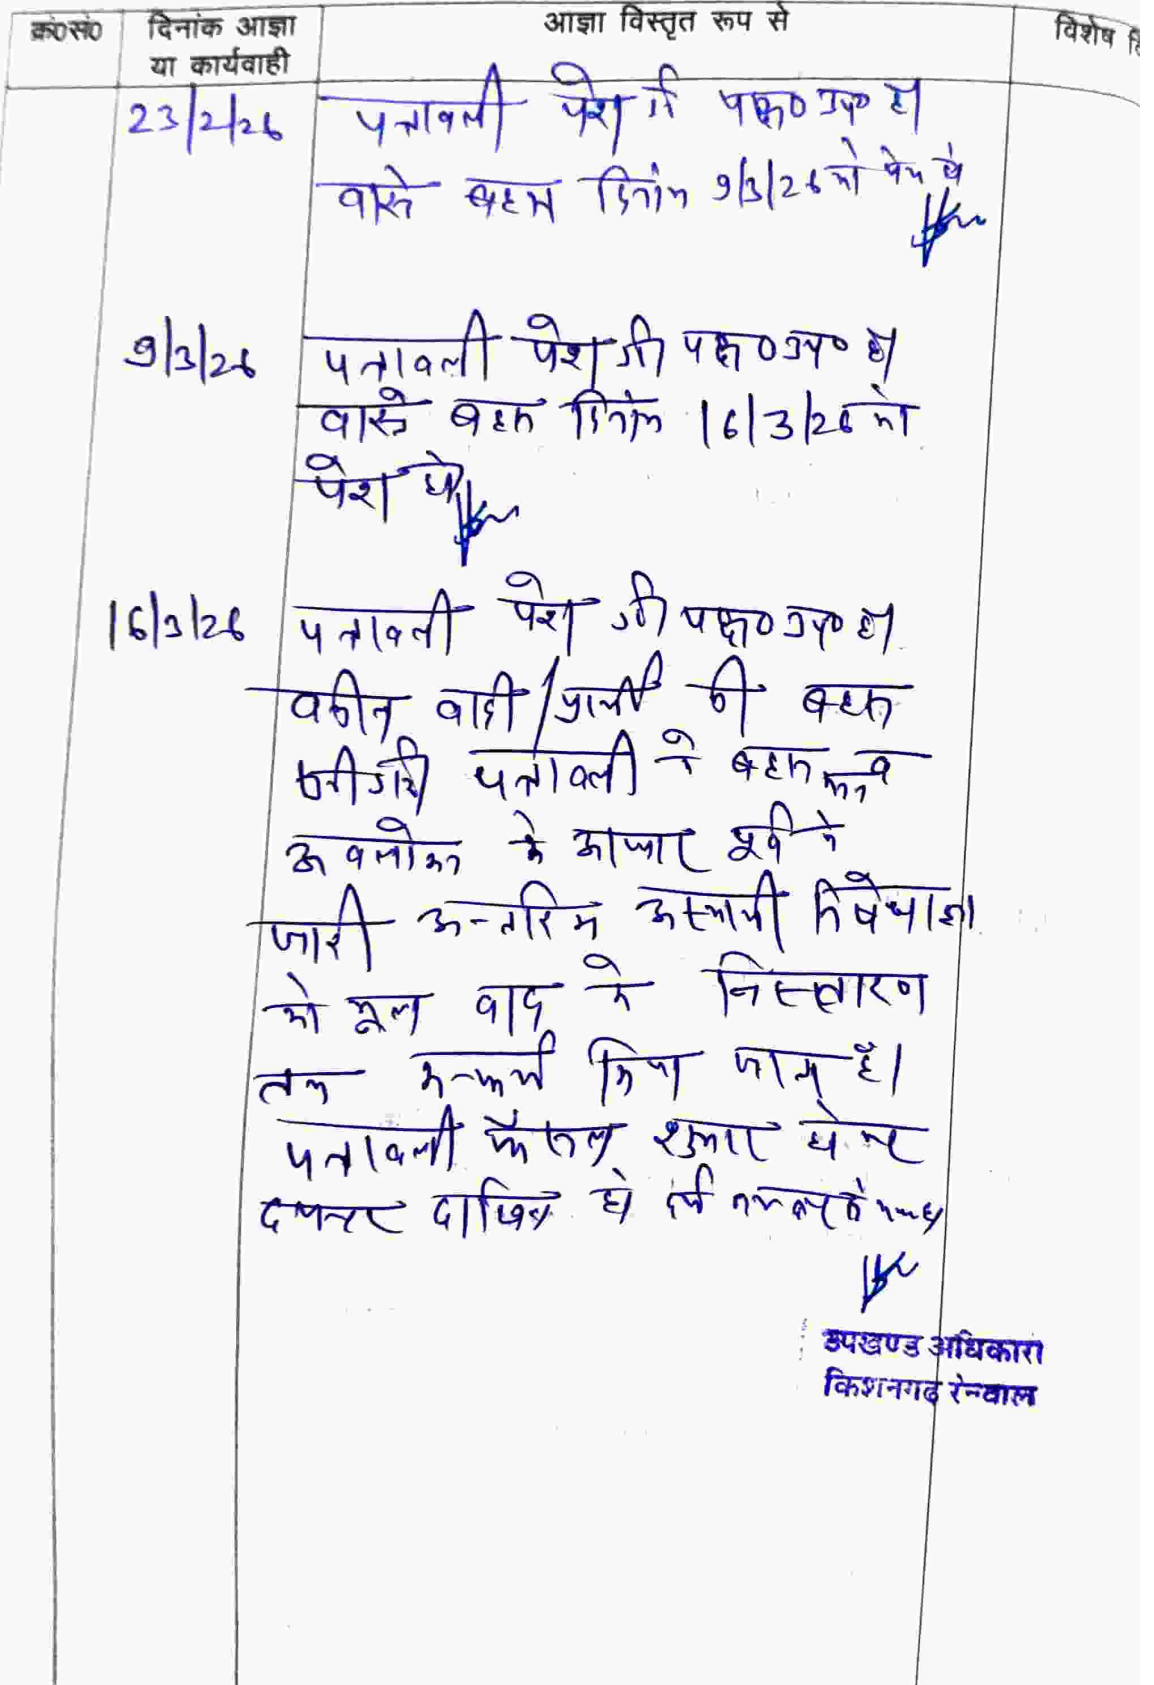 क्र०सं० दिनांक आज्ञा या कार्यवाही आज्ञा विस्तृत रूप से विशेष
23/2/26 पत्रावली पेश गी पक्ष० उप० है।
वास्ते बहस दिनांक 9/3/26 को पेश हो
9/3/26 पत्रावली पेश गी पक्ष० उप० है।
वास्ते बहस दिनांक 16/3/26 को
पेश हो
16/3/26 पत्रावली पेश गी पक्ष० उप० है।
वकील वादी/प्रार्थी की बहस
सुनी गयी पत्रावली के बहस व
अवलोकन के आधार पूर्व में
जारी अन्तरिम अस्थायी निषेधाज्ञा
को मूल वाद के निस्तारण
तक कन्फर्म किया जाता है।
पत्रावली फैसल शुमार होकर
दफ्तर दाखिल हो दर्ज नम्बर से कम हो
उपखण्ड अधिकारी
किशनगढ़ रेनवाल